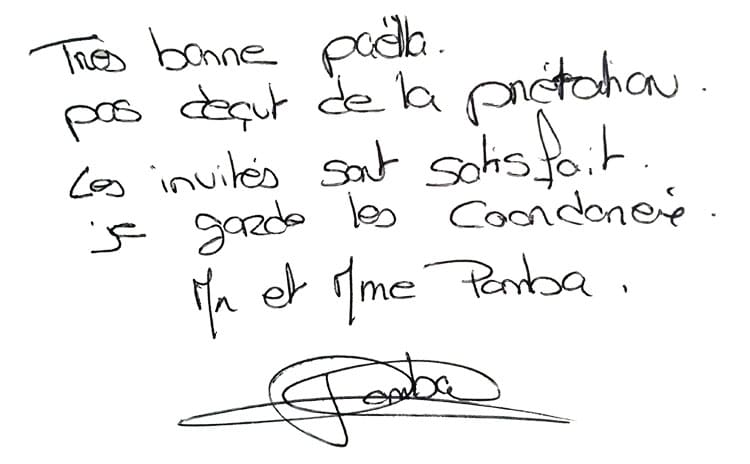 Très bonne paëlla.
pas deçut de la prétation.
Les invités sont satisfait.
je garde les Coordonerie.
Mr et Mme Pamba.
Pamba